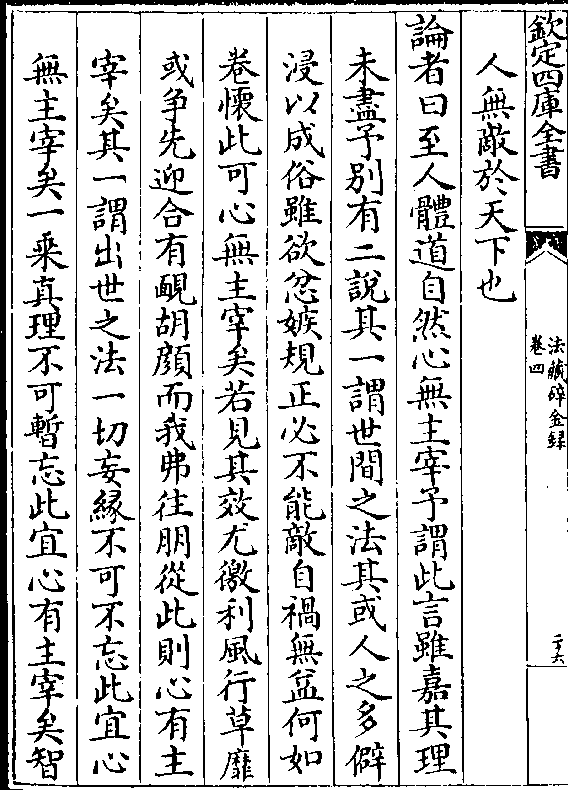 欽定四庫全書
法藏碎金録
卷四
二十六
人無敵於天下也
論者曰至人體道自然心無主宰予謂此言雖嘉其理
未盡予别有二説其一謂世間之法其或人之多僻
浸以成俗雖欲忿嫉規正必不能敵自禍無益何如
卷懷此可心無主宰矣若見其效尤徼利風行草靡
或争先迎合有靦胡顔而我弗往朋從此則心有主
宰矣其一謂出世之法一切妄縁不可不忘此宜心
無主宰矣一乗真理不可暫忘此宜心有主宰矣智